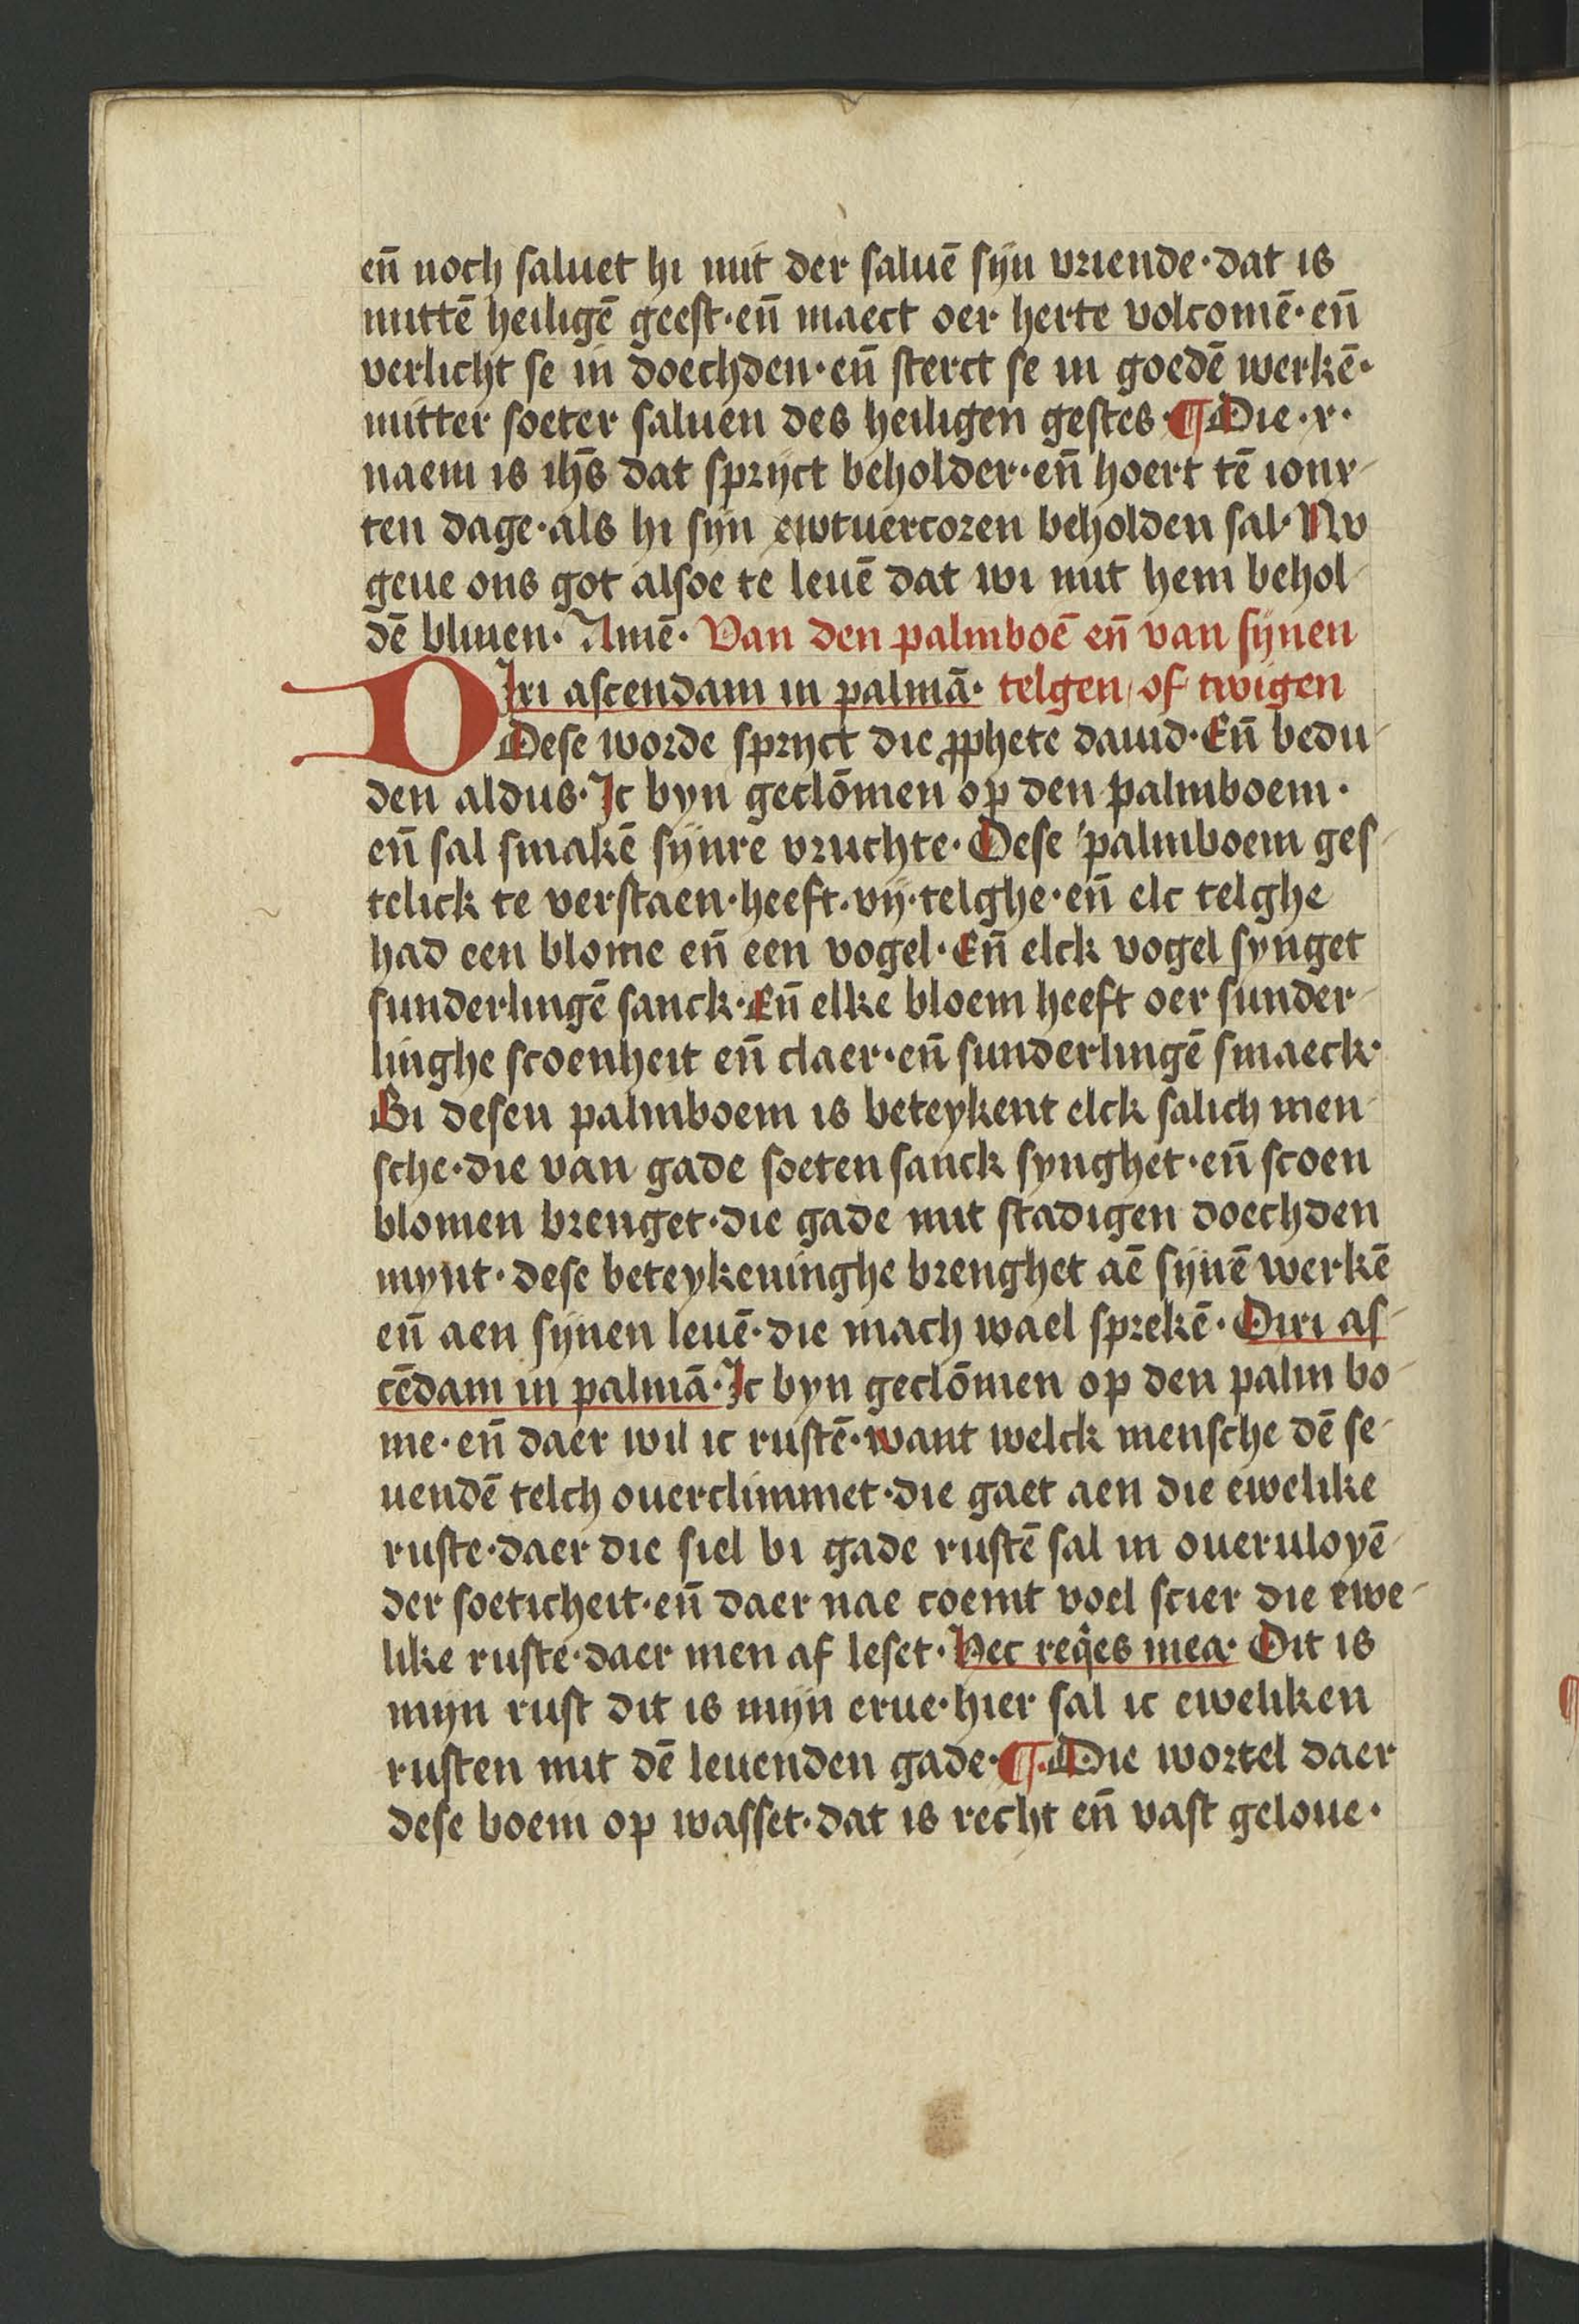 en̄ noch saluet hi mit der saluē sijn vriende·dat is
mittē heiligē geest·en̄ maect oer herte volcomē·en̄
verlicht se in doechden·en̄ sterct se in goedē werkē·
mitter soeter saluen des heiligen gestes·¶Die·x·
naem is ihs̄ dat sprijct beholder·en̄ hoert tē ionx-
ten dage·als hi sijn ewtuercoren beholden sal·Nv
geue ons got alsoe te leuē dat wi mit hem behol-
dē bliuen·Amē·Van den palmboē en̄ van sijnen
DIxi ascendam in palmā·telgen of twigen
Dese worde sprijct die ꝓphete dauid·En̄ bedu-
den aldus·Ic byn geclōmen op den palmboem·
en̄ sal smakē sijnre vruchte·Dese palmboem ges-
telick te verstaen·heeft·vij·telghe·en̄ elc telghe
had een blome en̄ een vogel·En̄ elck vogel synget
sunderlingē sanck·En̄ elke bloem heeft oer sunder-
linghe scoenheit en̄ claer·en̄ sunderlingē smaeck·
Bi desen palmboem is beteykent elck salich men-
sche·die van gade soeten sanck synghet·en̄ scoen
blomen brenget·die gade mit stadigen doechden
mynt·dese beteykeninghe brenghet aē sijnē werkē
en̄ aen sijnen leuē·die mach wael sprekē·Dixi as-
cēdam in palmā·Ic byn geclōmen op den palm bo-
me·en̄ daer wil ic rustē·want welck mensche dē se-
uendē telch ouerclimmet·die gaet aen die ewelike
ruste·daer die siel bi gade rustē sal in oueruloyē-
der soeticheit·en̄ daer nae coemt voel scier die ewe-
like ruste·daer men af leset·Hec reqͥes mea·Dit is
mijn rust dit is mijn erue·hier sal ic eweliken
rusten mit dē leuenden gade·¶·Die wortel daer
dese boem op wasset·dat is recht en̄ vast geloue·